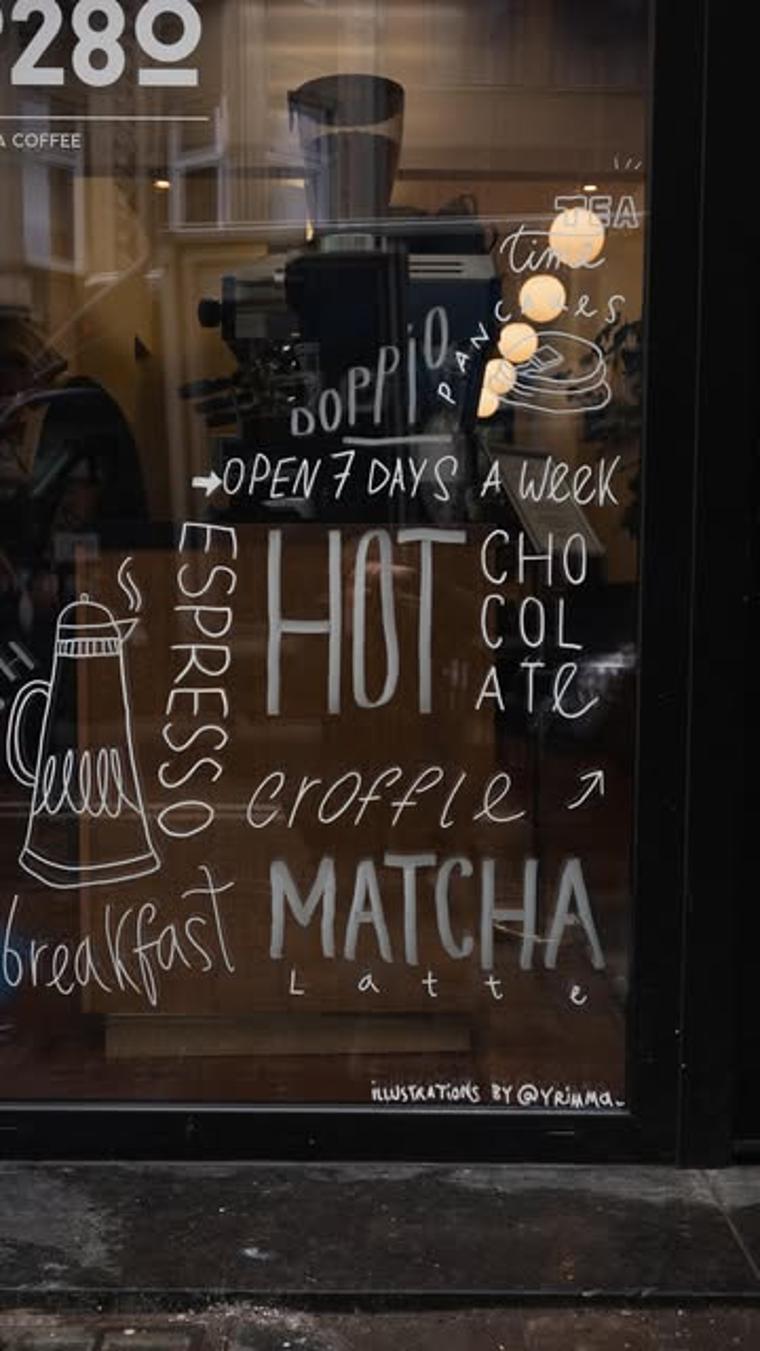 280
A COFFEE
TEA
time
PANCAKES
DOPPIO
OPEN 7 DAYS A WEEK
ESPRESSO
HOT
CHO
COL
ATE
croffle
MATCHA
Latte
breakfast
ILLUSTRATIONS BY @YRIMMA_